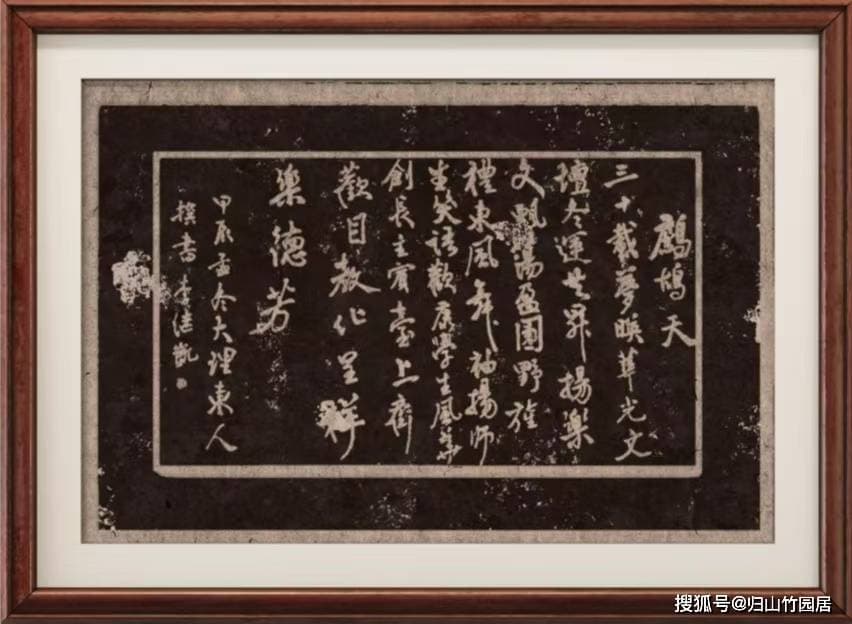 鹧鸪天
三十载夢映華光文
壇冬運共昇揚樂
文飄蕩盈園野雅
禮東風舞袖揚師
生笑語歡辰學生風華
創長主賓臺上齊
歡目教化呈祥
樂德芳
甲辰孟冬大理東人
撰書李德凱
搜狐号@归山竹园居